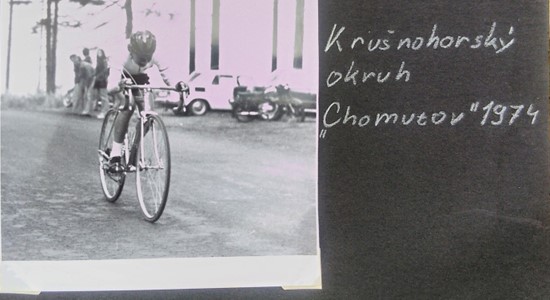 Krušnohorský
okruh
"Chomutov" 1974